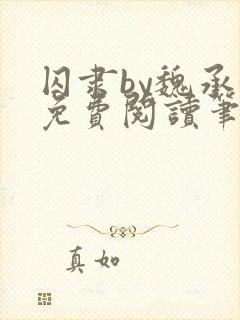 囚肃by魏承
免費閱讀筆
真如